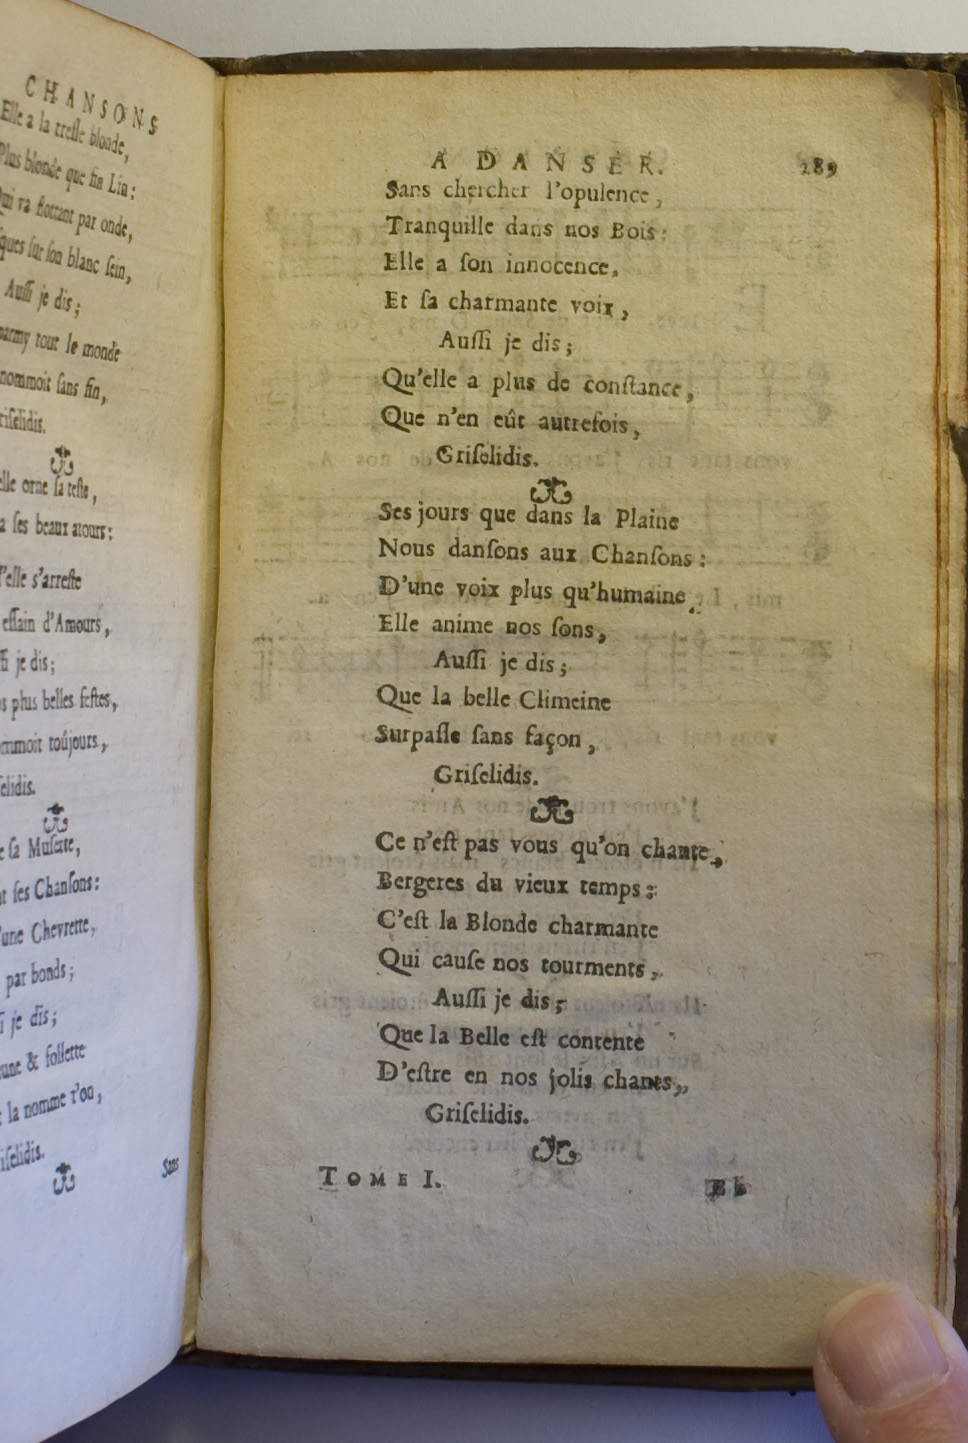 CHANSONS
Elle a la tresse blonde,
Plus blonde que fin Lin:
Qui va flottant par onde,
sques sur son blanc sein,
Aussi je dis;
parmy tout le monde
nommoit sans fin,
riselidis.
elle orne sa teste,
a ses beaux atours:
l'elle s'arreste
essain d'Amours,
ssi je dis;
os plus belles festes,
ommoit toûjours,
selidis.
e sa Musette,
nt ses Chansons:
'une Chevrette,
par bonds;
i je dis;
eune & follette
la nomme t'on,
iselidis.
Sans
A DANSER. 289
Sans chercher l'opulence,
Tranquille dans nos Bois:
Elle a son innocence,
Et sa charmante voix,
Aussi je dis;
Qu'elle a plus de constance,
Que n'en eût autrefois,
Griselidis.
Ses jours que dans la Plaine
Nous dansons aux Chansons:
D'une voix plus qu'humaine,
Elle anime nos sons,
Aussi je dis;
Que la belle Climeine
Surpasse sans façon,
Griselidis.
Ce n'est pas vous qu'on chante,
Bergeres du vieux temps:
C'est la Blonde charmante
Qui cause nos tourments,
Aussi je dis;
Que la Belle est contente
D'estre en nos jolis chants,
Griselidis.
TOME I. Bb